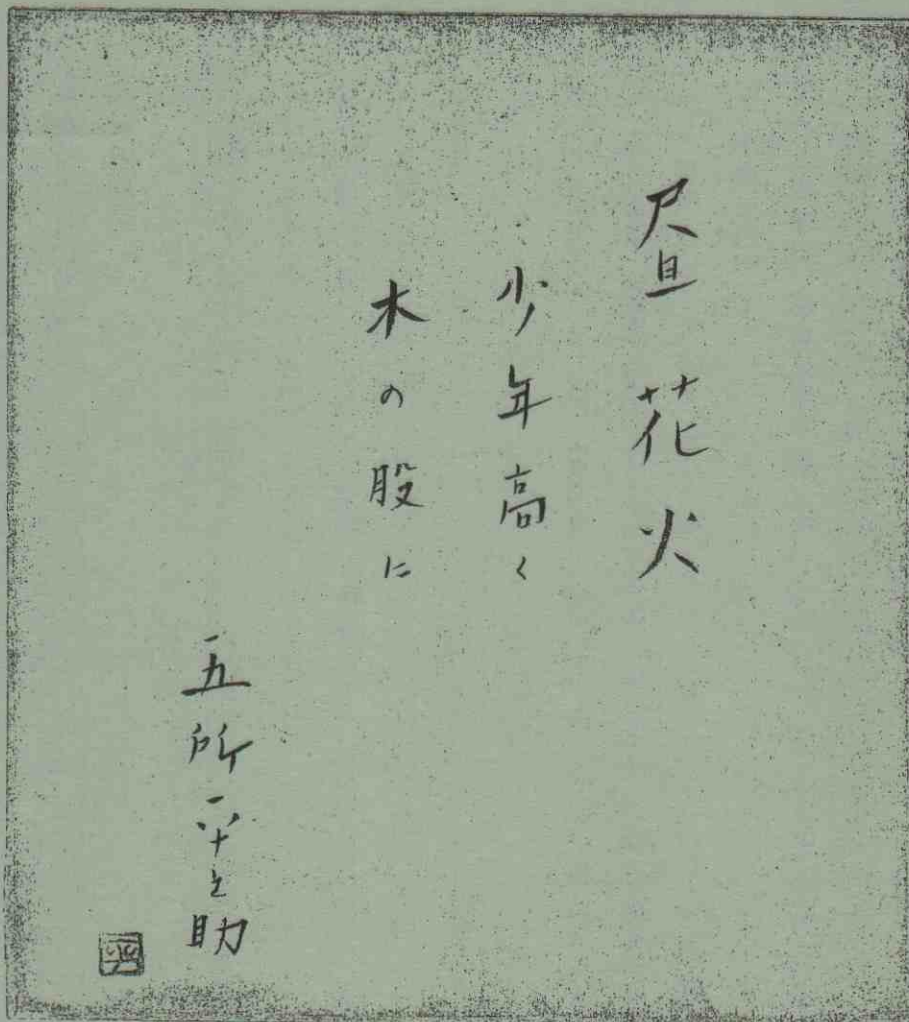 昼花火
少年高く
木の股に
五所平之助